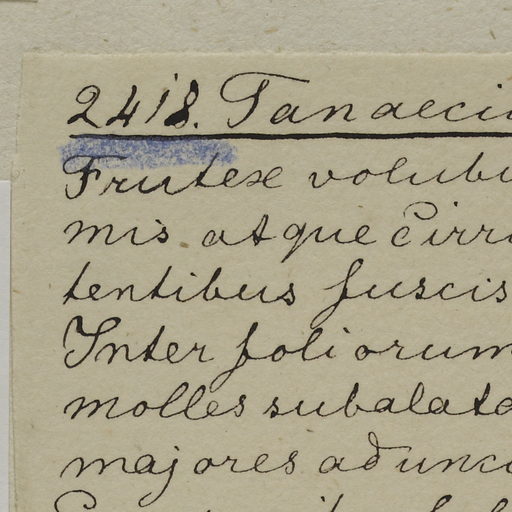 2418. Tanaeci
Frutex volubi
mis atque Cirr
tentibus fuscis
Inter foliorum
molles subalata
majores adunc